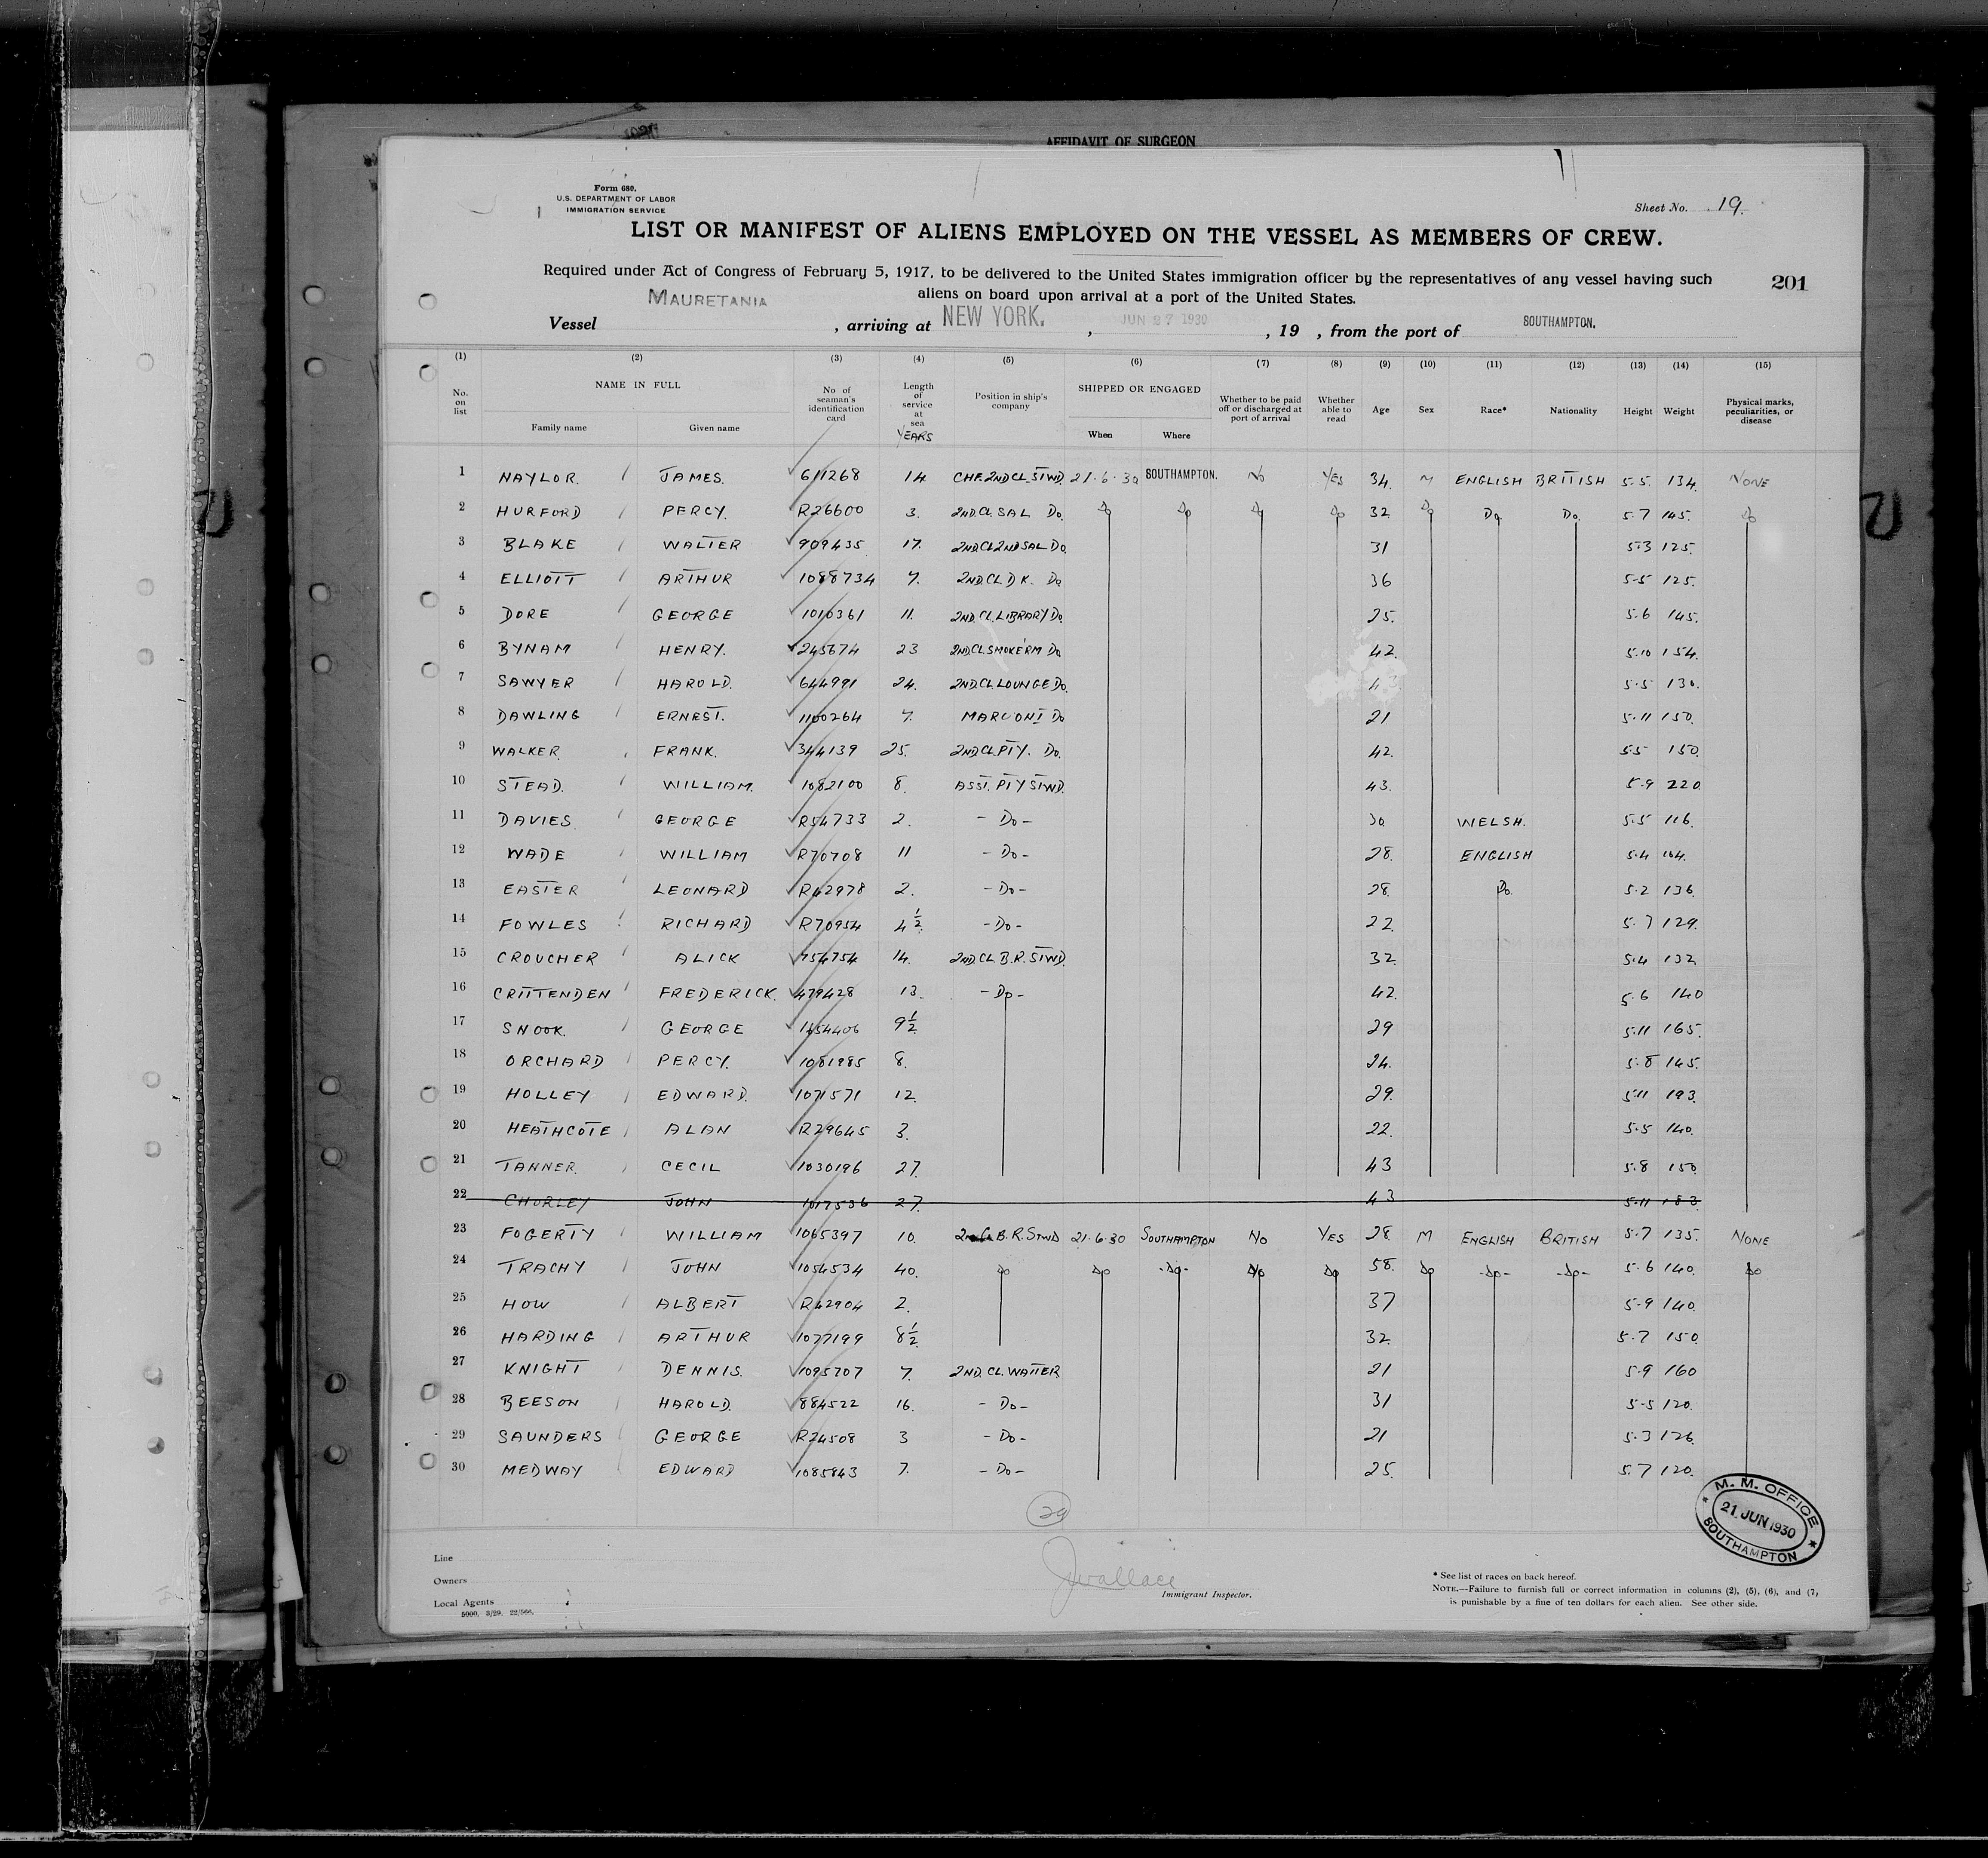 AFFIDAVIT OF SURGEON
Form 680.
U.S. DEPARTMENT OF LABOR
IMMIGRATION SERVICE
Sheet No. 19.
LIST OR MANIFEST OF ALIENS EMPLOYED ON THE VESSEL AS MEMBERS OF CREW.
Required under Act of Congress of February 5, 1917, to be delivered to the United States immigration officer by the representatives of any vessel having such
aliens on board upon arrival at a port of the United States.
201
Vessel MAURETANIA, arriving at NEW YORK., JUN 27 1930, 19 , from the port of SOUTHAMPTON.
(1) (2) (3) (4) (5) (6) (7) (8) (9) (10) (11) (12) (13) (14) (15)
No. on list NAME IN FULL Family name Given name No of seaman's identification card Length of service at sea YEARS Position in ship's company SHIPPED OR ENGAGED When Where Whether to be paid off or discharged at port of arrival Whether able to read Age Sex Race* Nationality Height Weight Physical marks, peculiarities, or disease
1 NAYLOR. JAMES. 611268 14 CHF.2ND CL.STWD. 21.6.30 SOUTHAMPTON. NO YES 34. M ENGLISH BRITISH 5.5. 134. NONE
2 HURFORD PERCY. R26600 3. 2ND.CL.SAL Do. Do Do Do Do 32 Do Do Do. 5.7 145. Do
3 BLAKE WALTER 909435 17. 2ND.CL 2ND SAL Do. 31 5.3 125.
4 ELLIOTT ARTHUR 1088734 7. 2ND.CL.DK. Do 36 5.5 125.
5 DORE GEORGE 1010361 11. 2ND.CL.LIBRARY Do. 25. 5.6 145.
6 BYNAM HENRY. 245674 23 2ND CL SMOKERM Do 42. 5.10 154.
7 SAWYER HAROLD. 644991 24. 2ND.CL.LOUNGE Do. 43 5.5 130.
8 DAWLING ERNEST. 1100264 7. MARCONI Do 21 5.11 150.
9 WALKER FRANK. 344139 25. 2ND CL PTY. Do. 42. 5.5 150.
10 STEAD. WILLIAM. 1082100 8. ASST. PTY STWD. 43. 5.9 220.
11 DAVIES. GEORGE R54733 2. - Do - 30 WELSH. 5.5 116.
12 WADE WILLIAM R70708 11 - Do - 28. ENGLISH 5.4 164.
13 EASTER LEONARD R42978 2. - Do - 28. Do. 5.2 136.
14 FOWLES RICHARD R70954 4½. - Do - 22. 5.7 129.
15 CROUCHER ALICK 754754 14. 2ND.CL B.R. STWD. 32. 5.4 132
16 CRITTENDEN FREDERICK. 479428 13. - Do - 42. 5.6 140
17 SNOOK. GEORGE 1454406 9½ 29 5.11 165.
18 ORCHARD PERCY. 1081985 8. 24. 5.8 145.
19 HOLLEY EDWARD. 1071571 12. 29. 5.11 193.
20 HEATHCOTE ALAN R29645 3. 22. 5.5 140.
21 TANNER. CECIL 1030196 27. 43 5.8 150
22 CHORLEY JOHN 1017536 27. 43 5.11 183
23 FOGERTY WILLIAM 1065397 10. 2nd Cl B.R. STWD 21.6.30 SOUTHAMPTON NO YES 28. M ENGLISH BRITISH 5.7 135. NONE
24 TRACHY JOHN 1054534 40. Do Do -Do- Do Do 58. Do -Do- -Do- 5.6 140. Do
25 HOW ALBERT R42904 2. 37 5.9 140.
26 HARDING ARTHUR 1077199 8½ 32. 5.7 150
27 KNIGHT DENNIS. 1095707 7. 2ND. CL. WAITER 21 5.9 160
28 BEESON HAROLD. 884522 16. - Do - 31 5.5 120.
29 SAUNDERS GEORGE R24508 3 - Do - 21 5.3 126.
30 MEDWAY EDWARD 1085843 7. - Do - 25. 5.7 120.
29
M. M. OFFICE
21 JUN 1930
SOUTHAMPTON
Line
Owners
Local Agents
5000. 3/29. 22/566.
J Wallace
Immigrant Inspector.
* See list of races on back hereof.
NOTE.—Failure to furnish full or correct information in columns (2), (5), (6), and (7,
is punishable by a fine of ten dollars for each alien. See other side.